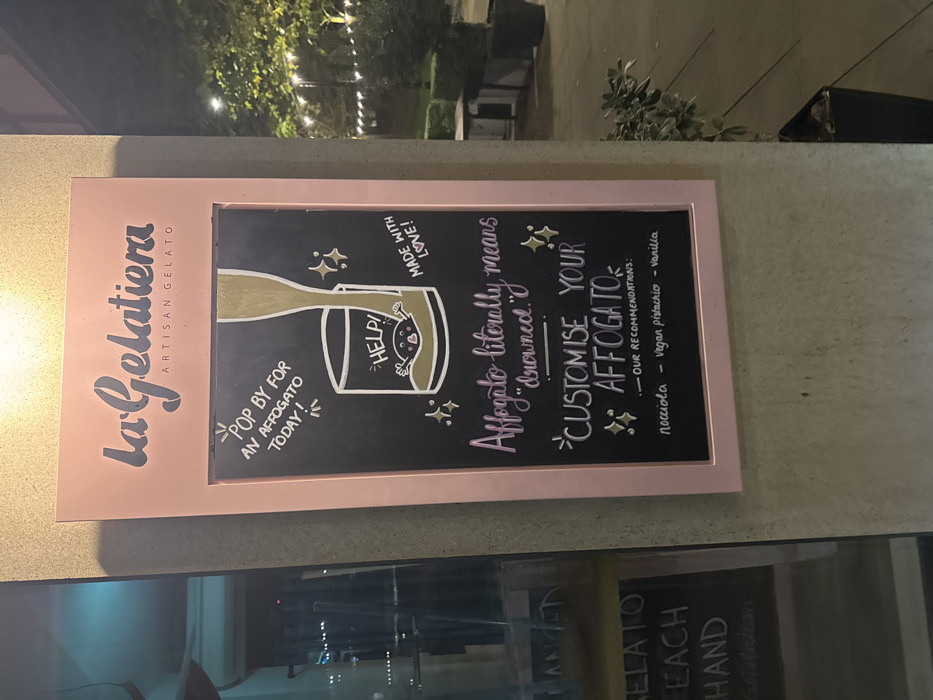 La Gelatiera
ARTISAN GELATO
POP BY FOR
AN AFFOGATO
TODAY!
HELP!
MADE WITH
LOVE!
Affogato literally means
"drowned"
CUSTOMISE YOUR
AFFOGATO
— OUR RECOMMENDATIONS:
nocciola – vegan pistachio – vanilla
ELATO
EACH
HAND